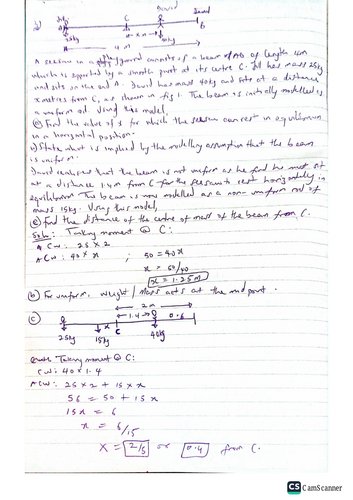 David
David
C
B
x m
25kg
40kg
A
4 m
A seesaw in a playground consists of a beam AB of length 4m
which is supported by a smooth pivot at its centre C. Jill has mass 25kg
and sits on the end A. David has mass 40kg and sits at a distance
x metres from C, as shown in fig 1. The beam is initially modelled is
a uniform rod. Using this model,
a) Find the value of x for which the seesaw can rest in equilibrium
in a horizontal position.
b) State what is implied by the modelling assumption that the beam
is uniform.
David realises that the beam is not uniform as he finds he must sit
at a distance 1.4m from C for the seesaw to rest horizontally in
equilibrium. The beam is now modelled as a non-uniform rod of
mass 15kg. Using this model,
c) Find the distance of the centre of mass of the beam from C.
Soln: Taking moment @ C:
A CW: 25 x 2
CW: 40 x x ; 50 = 40x
x = 50/40
x = 1.25m
(b) For uniform, weight/mass acts at the midpoint.
(c)
2m
1.4
0.6
x
C
25kg
15kg
40kg
Taking moment @ C:
CW: 40 x 1.4
ACW: 25 x 2 + 15 x x
56 = 50 + 15x
15x = 6
x = 6/15
x = 2/5 or 0.4 from C.
CS CamScanner